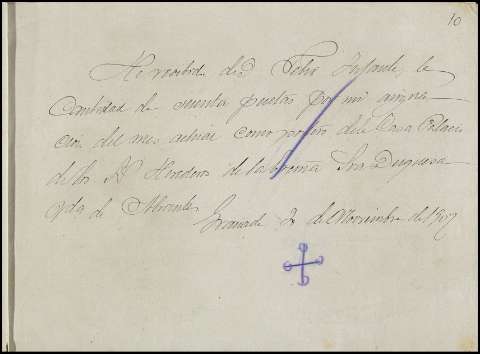 10
He recibido de D. Felix Infante, la
Cantidad de cuenta pesetas por mi asigna
cion del mes actual como portero de la Casa Palacio
de los Herederos de la Excma Sra Duquesa
Vda de Abrantes
Granada 2 de Noviembre de 1907